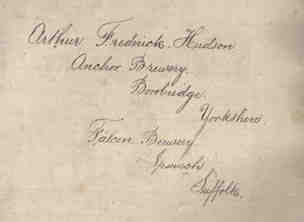 Arthur Fredrick Hudson
Anchor Brewery.
Yorkshire.
Falcon Brewery
Ipswich
Suffolk.